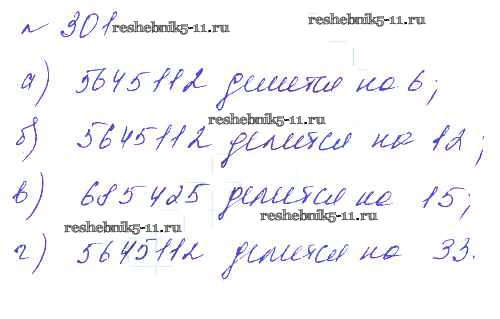 № 301 reshebnik5-11.ru
а) 5645112 делится на 6;
reshebnik5-11.ru
б) 5645112 делится на 12;
в) 685425 делится на 15;
reshebnik5-11.ru reshebnik5-11.ru
г) 5645112 делится на 33.